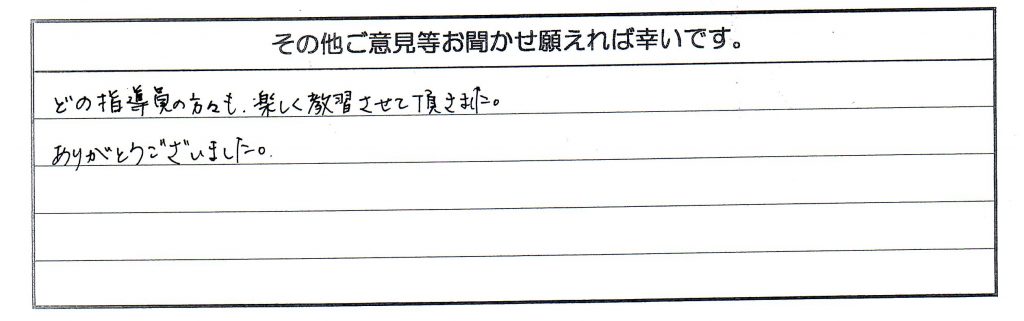 その他ご意見等お聞かせ願えれば幸いです。
どの指導員の方々も、楽しく教習させて頂きました。
ありがとうございました。